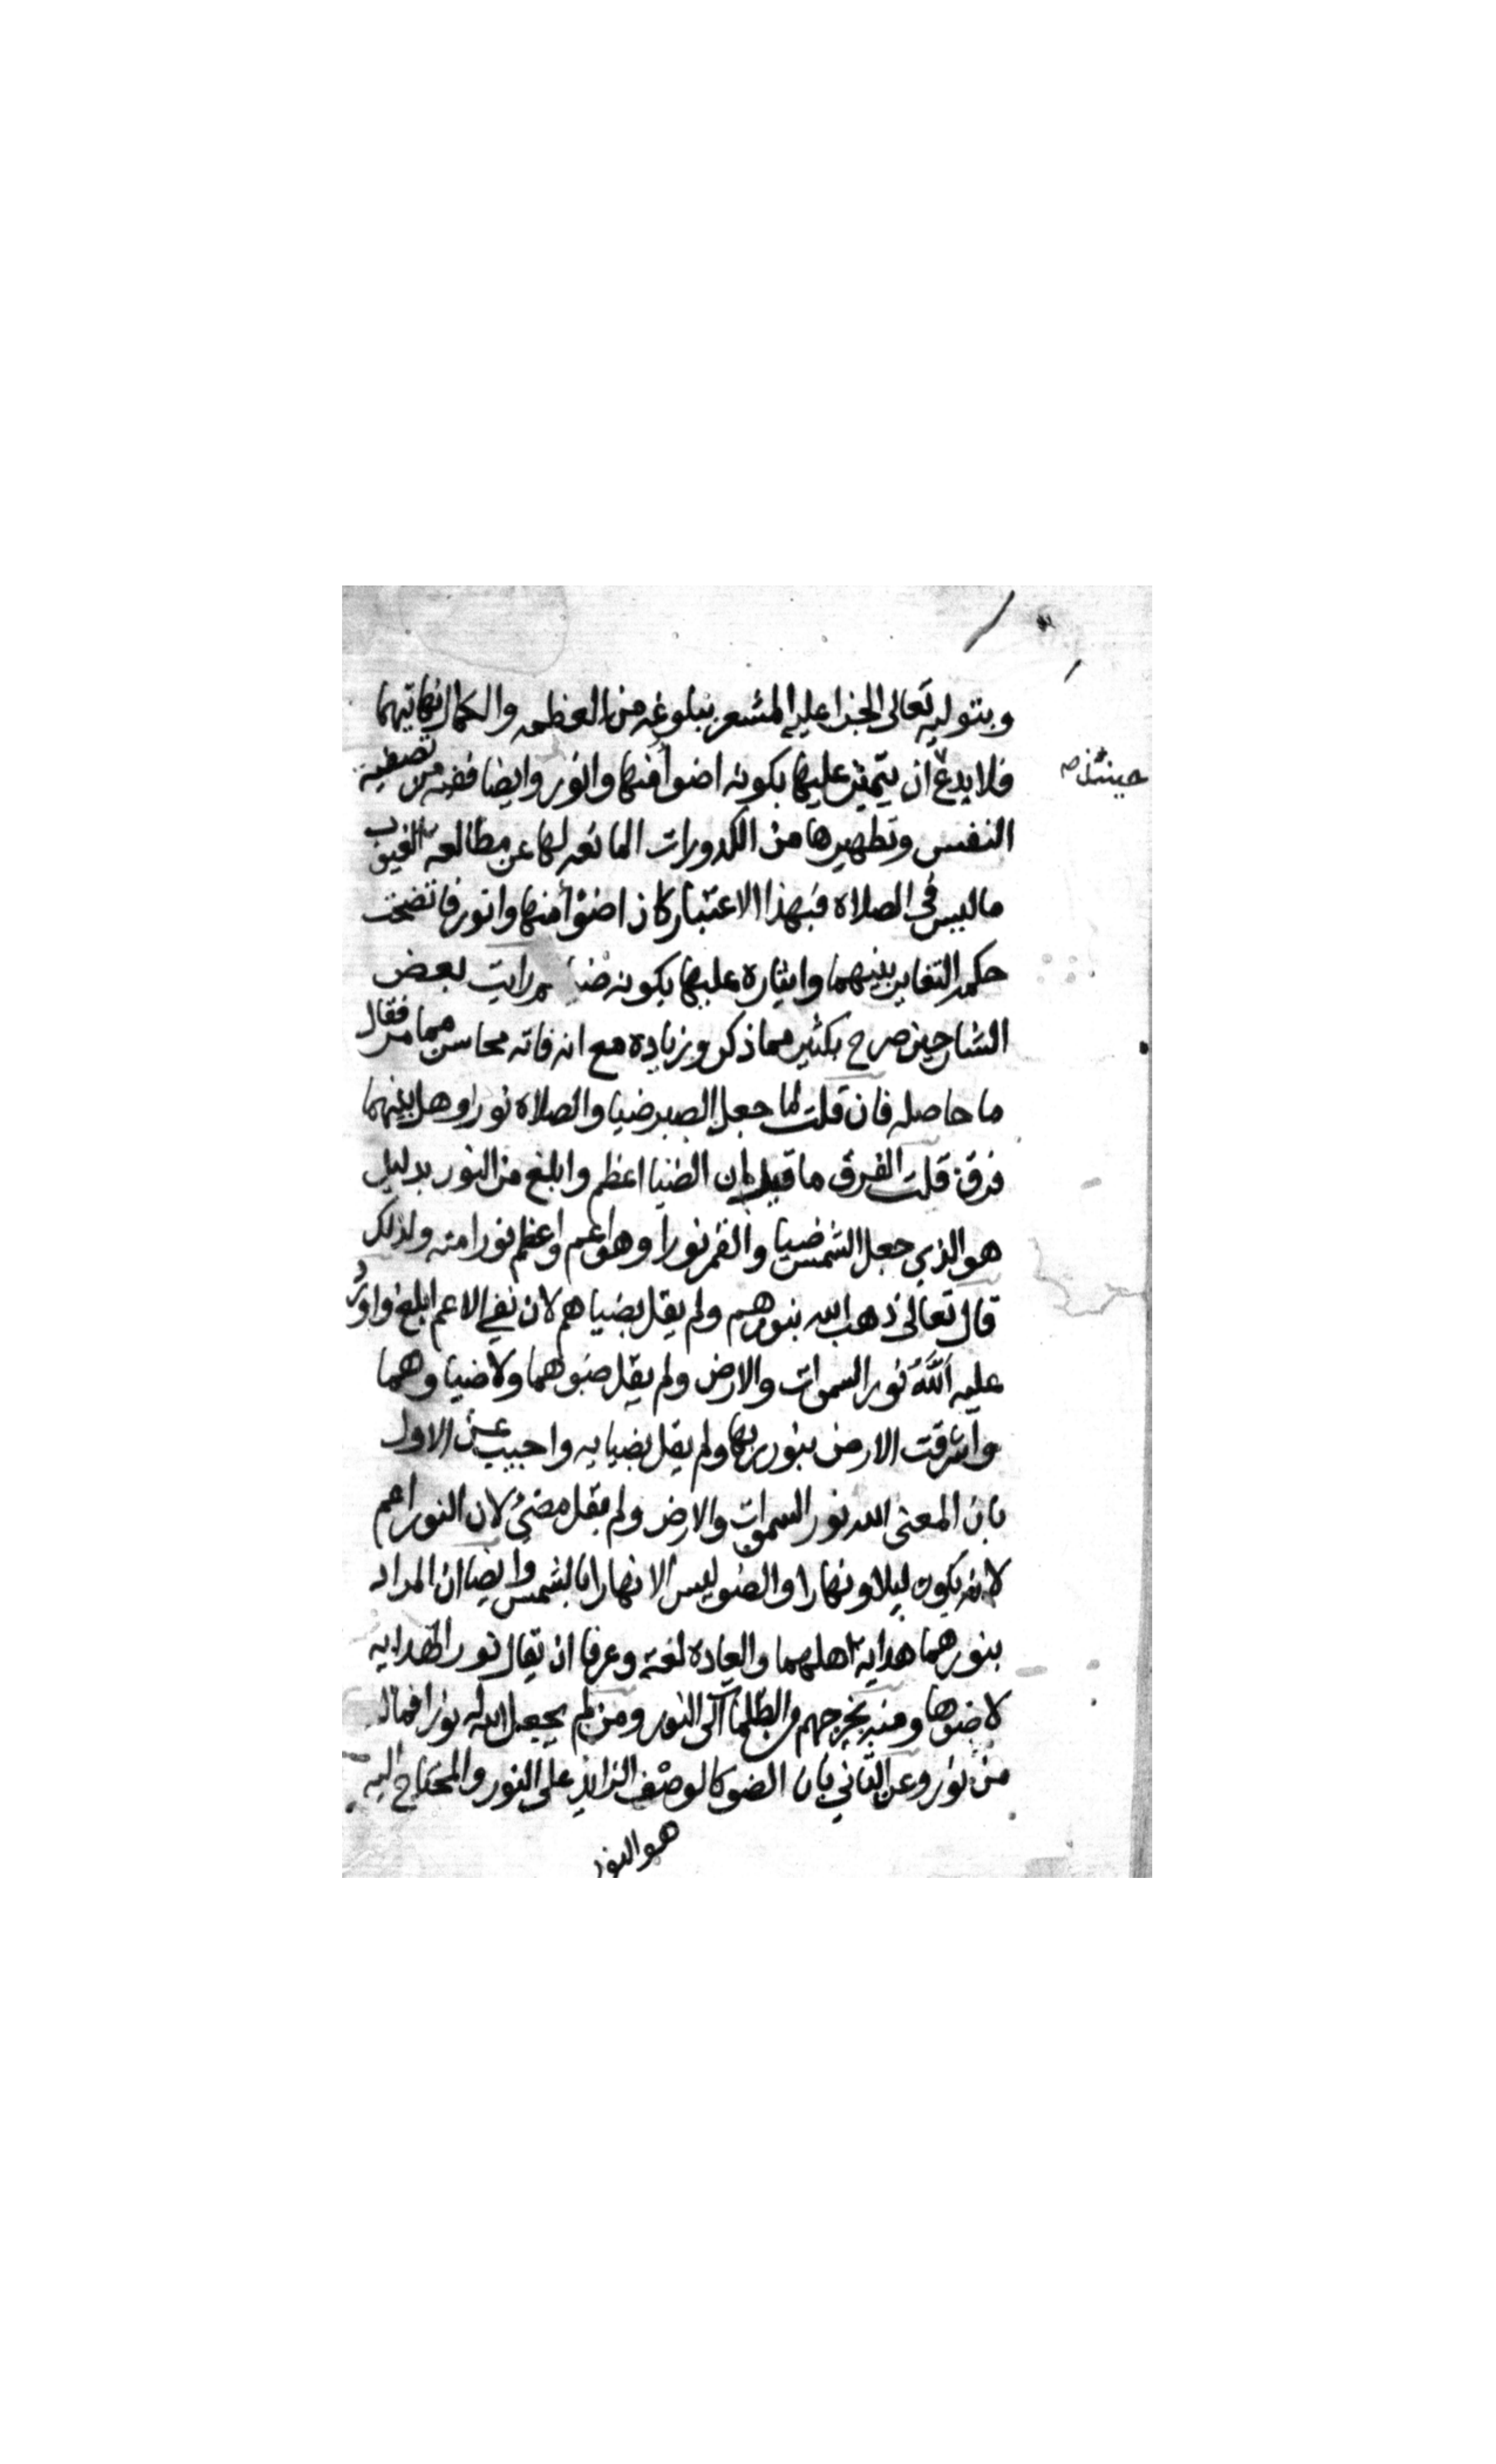 وبتوليه تعالى الجزا عليه المشعر ببلوغه من العظمه والكمال نهايتهما
فلا بدع ان يتميز عليها بكونه اضوأ منها وانور وايضا ففيه من تصفية
حينئذ صح
النفس وتطهيرها من الكدورات المانعه لها عن مطالعة الغيوب
ما ليس في الصلاة فبهذا الاعتبار كان اضوأ منها وانور فاتضحت
حكمه التغاير بينهما وايثاره عليها بكونه ضيا رايت بعض
الشارحين صرح بكثير مما ذكر وزياده مع انه فاته محاسن مما مر فقال
ما حاصله فان قلت لما جعل الصبر ضيا والصلاة نورا وهل بينهما
فرق قلت الفرق ما قيل ان الضيا اعظم وابلغ من النور بدليل
هو الذي جعل الشمس ضيا والقمر نورا وهو اعم واعظم نورا منه ولذلك
قال تعالى ذهب الله بنورهم ولم يقل بضياهم لان نفي الاعم ابلغ واورد
عليه اللهُ نور السموات والارض ولم يقل ضوهما ولا ضياوهما
واشرقت الارض بنور ربها ولم يقل بضيايه واجيب عن الاول
بان المعنى الله نور السموات والارض ولم يقل مضئ لان النور اعم
لانه يكون ليلا ونهارا والضو ليس الا نهارا بالشمس وايضا ان المراد
بنورهما هداية اهلهما والعاده لغة وعرفا ان يقال نور الهدايه
لا ضوها ومنه يخرجهم من الظلمات الى النور ومن لم يجعل الله له نورا فماله
من نور وعن الثاني بان الضو كالوصف الزايد على النور والمحتاج اليه
هو النور